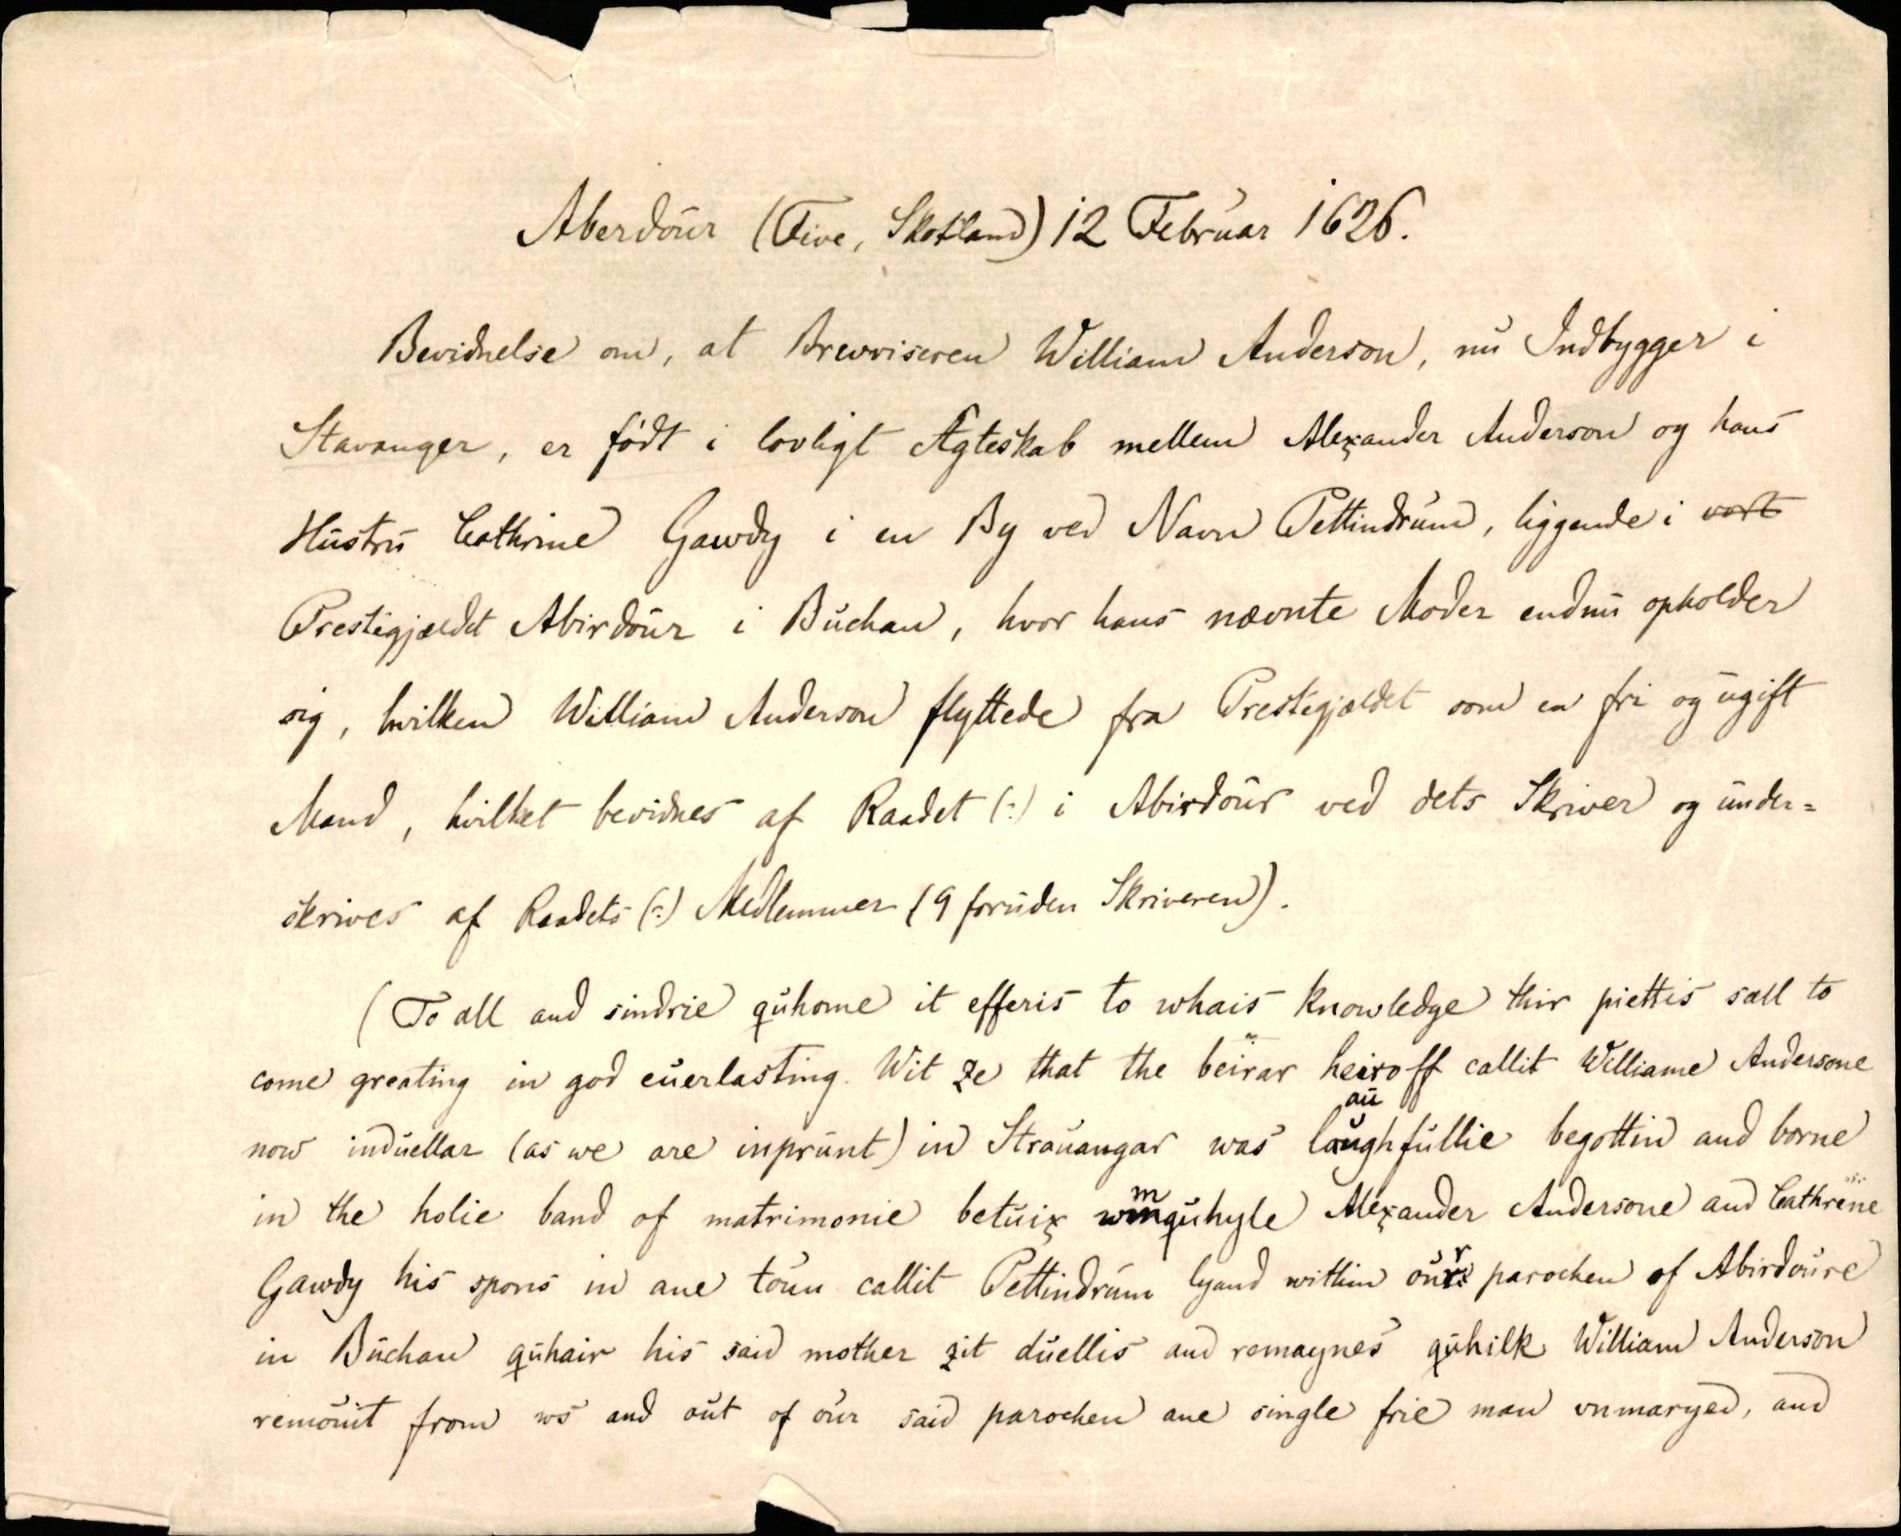 Aberdour (Five, Skotland) 12 Februar 1626.
Bevidnelse om, at Brevviseren William Anderson, nu Indbygger i
Stavanger, er født i lovligt Ægteskab mellem Alexander Anderson og hans
Hustru Cathrine Gawdy i en By ved Navn Pettindrum, liggende i vort
Prestegjældet Abirdour i Buchan, hvor hans nævnte Moder endnu opholder
sig, hvilken William Anderson flyttede fra Prestegjældet som en fri og ugift
Mand, hvilket bevidnes af Raadet (?) i Abirdour ved dets Skriver og under=
skrives af Raadets (?) Medlemmer (9 foruden Skriveren).
(To all and sindrie quhome it efferis to whais knowledge thir piettis sall to
come greating in god euerlasting. Wit ze that the beirar heiroff callit Williame Andersone
now induellar (as we are inprunt) in Strauangar was laughfullie begottin and borne
in the holie band of matrimonie betuix wmquhyle Alexander Andersone and Cathrene
Gawdy his spons in ane toun callit Pettindrum lyand within our parochen of Abirdoure
in Buchan quhair his said mother zit duellis and remaynes quhilk William Anderson
remouit from ws and out of our said parochen ane single frie man vnmaryed, and